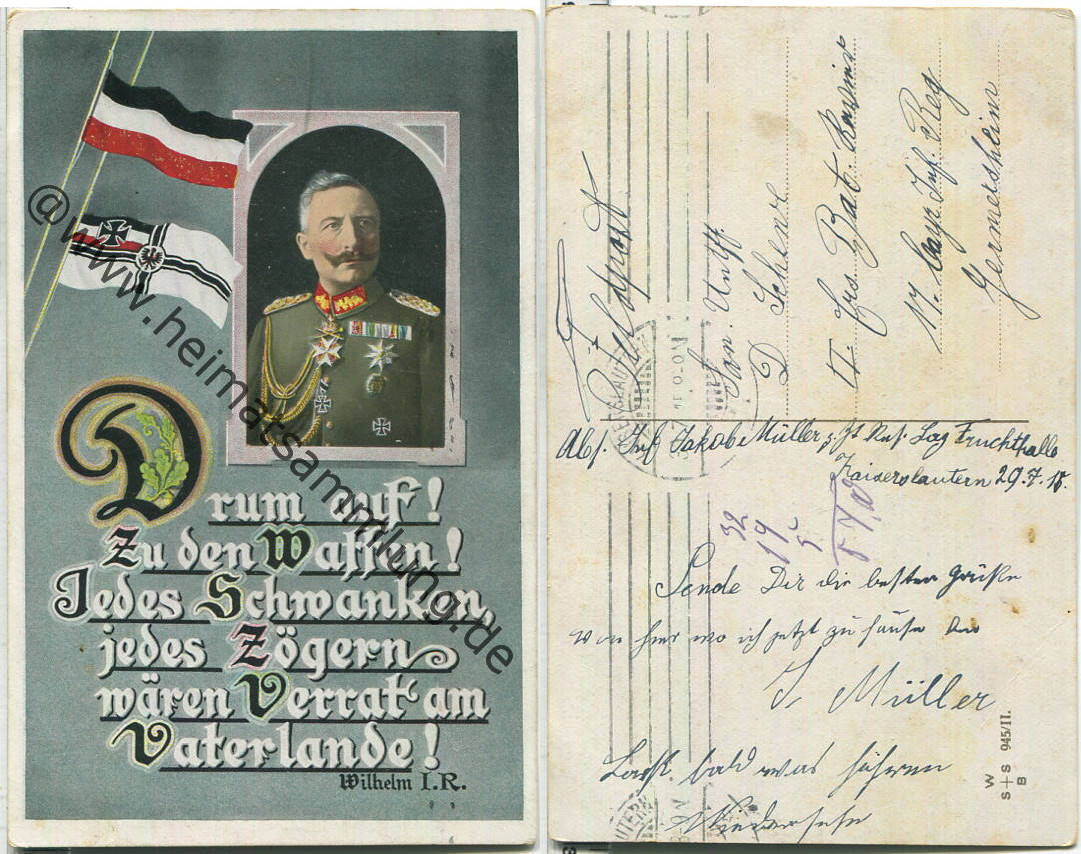 Drum auf!
Zu den Waffen!
Jedes Schwanken,
jedes Zögern
wären Verrat am
Vaterlande!
Wilhelm I.R.
@www.heimatsammlung.de
Feldpost
San. Untff.
D. Scherer
II. Ers. Bat.
17. bayr. Inf. Reg
Germersheim
Abs. Inf Jakob Müller z. Zt Res. Laz Fruchthalle
Kaiserslautern 29.7.15
Sende Dir die besten Grüße
von hier wo ich jetzt zu hause bin
J. Müller
Laß bald was hören
Wiedersehn
W S+S B 945/II.